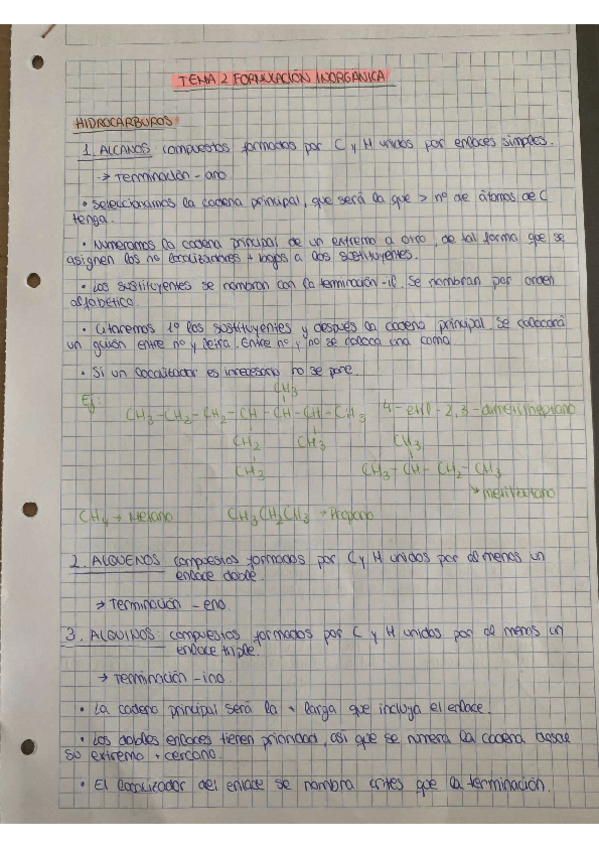 TEMA 2 FORMULACIÓN INORGANICA
HIDROCARBUROS
1. ALCANOS: compuestos formados por C y H unidos por enlaces simples.
→ Terminación -ano
• Seleccionamos la cadena principal, que será la que > nº de átomos de C
tenga.
• Numeramos la cadena principal de un extremo a otro, de tal forma que se
asignen los no localizadores + bajos a los sustituyentes.
• Los sustituyentes se nombran con la terminación -il. Se nombran por orden
alfabético.
• Citaremos 1º los sustituyentes y después la cadena principal. Se colocará
un guión entre nº y letra. Entre nº y nº se coloca una coma
• Si un localizador es innecesario no se pone.
Ej:
CH3
CH3-CH2-CH2-CH-CH-CH-CH3 4-etil-2,3-dimetilheptano
CH2 CH3 CH3
CH3 CH3-CH-CH2-CH3
→ metilbutano
CH4 → Metano CH3CH2CH3 → Propano
2. ALQUENOS: compuestos formados por C y H unidos por al menos un
enlace doble.
→ Terminación -eno.
3. ALQUINOS: compuestos formados por C y H unidos por al menos un
enlace triple.
→ Terminación -ino.
• La cadena principal será la + larga que incluya el enlace.
• Los dobles enlaces tienen prioridad, así que se numera la cadena desde
su extremo + cercano.
• El localizador del enlace se nombra antes que la terminación.